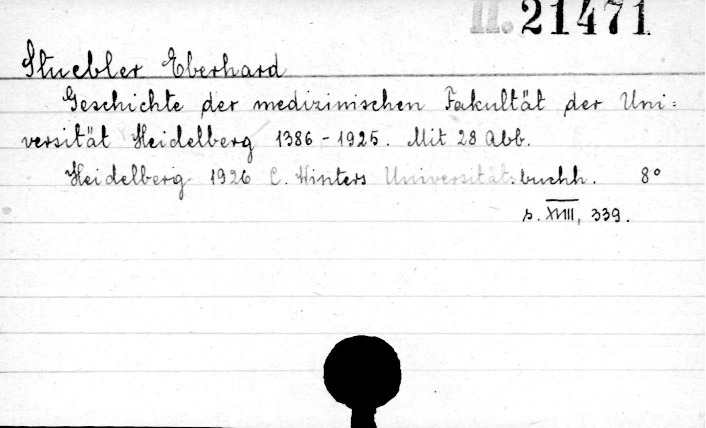 II. 21471
Stuebler Eberhard
Geschichte der medizinischen Fakultät der Uni=
versität Heidelberg 1386-1925. Mit 28 Abb.
Heidelberg 1926 C. Winters Universitätsbuchh. 8°
s. XVIII, 339.